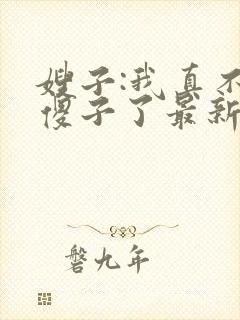 嫂子:我真不
傻子了最新
磐九年